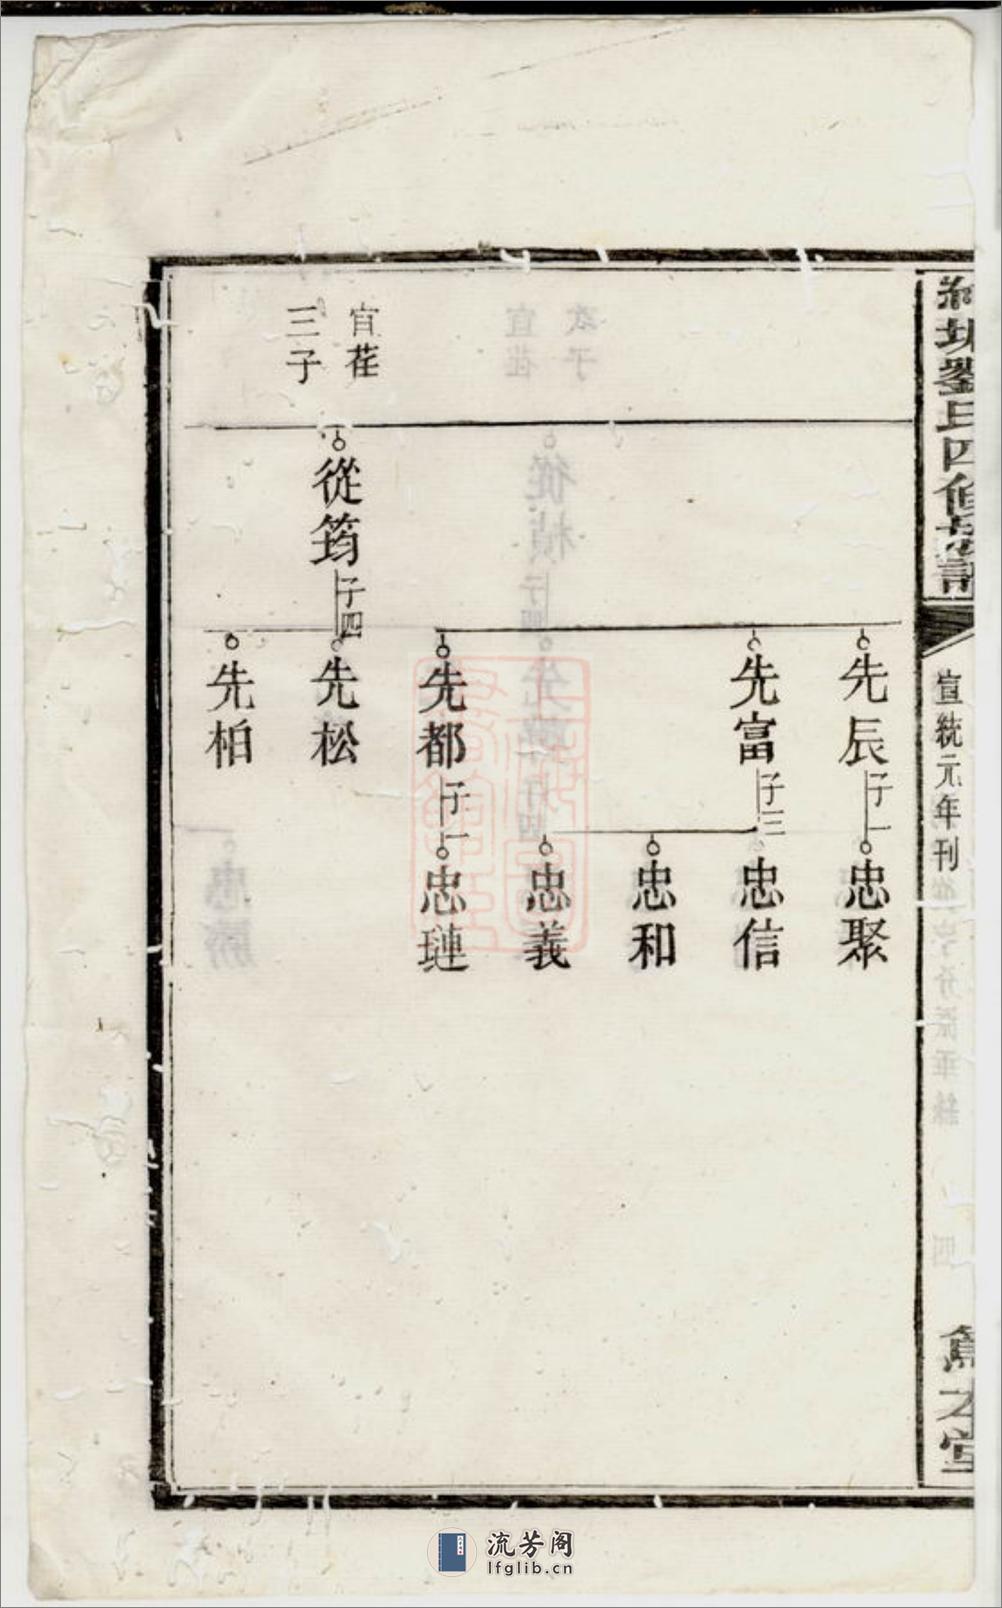 劉氏四修族譜
宣統元年刊
之堂
先辰
子一
忠聚
先富
子三
忠信
忠和
忠義
先都
子一
忠璉
宜荏
三子
從筠
子四
先松
先柏
流芳阁
lfglib.cn